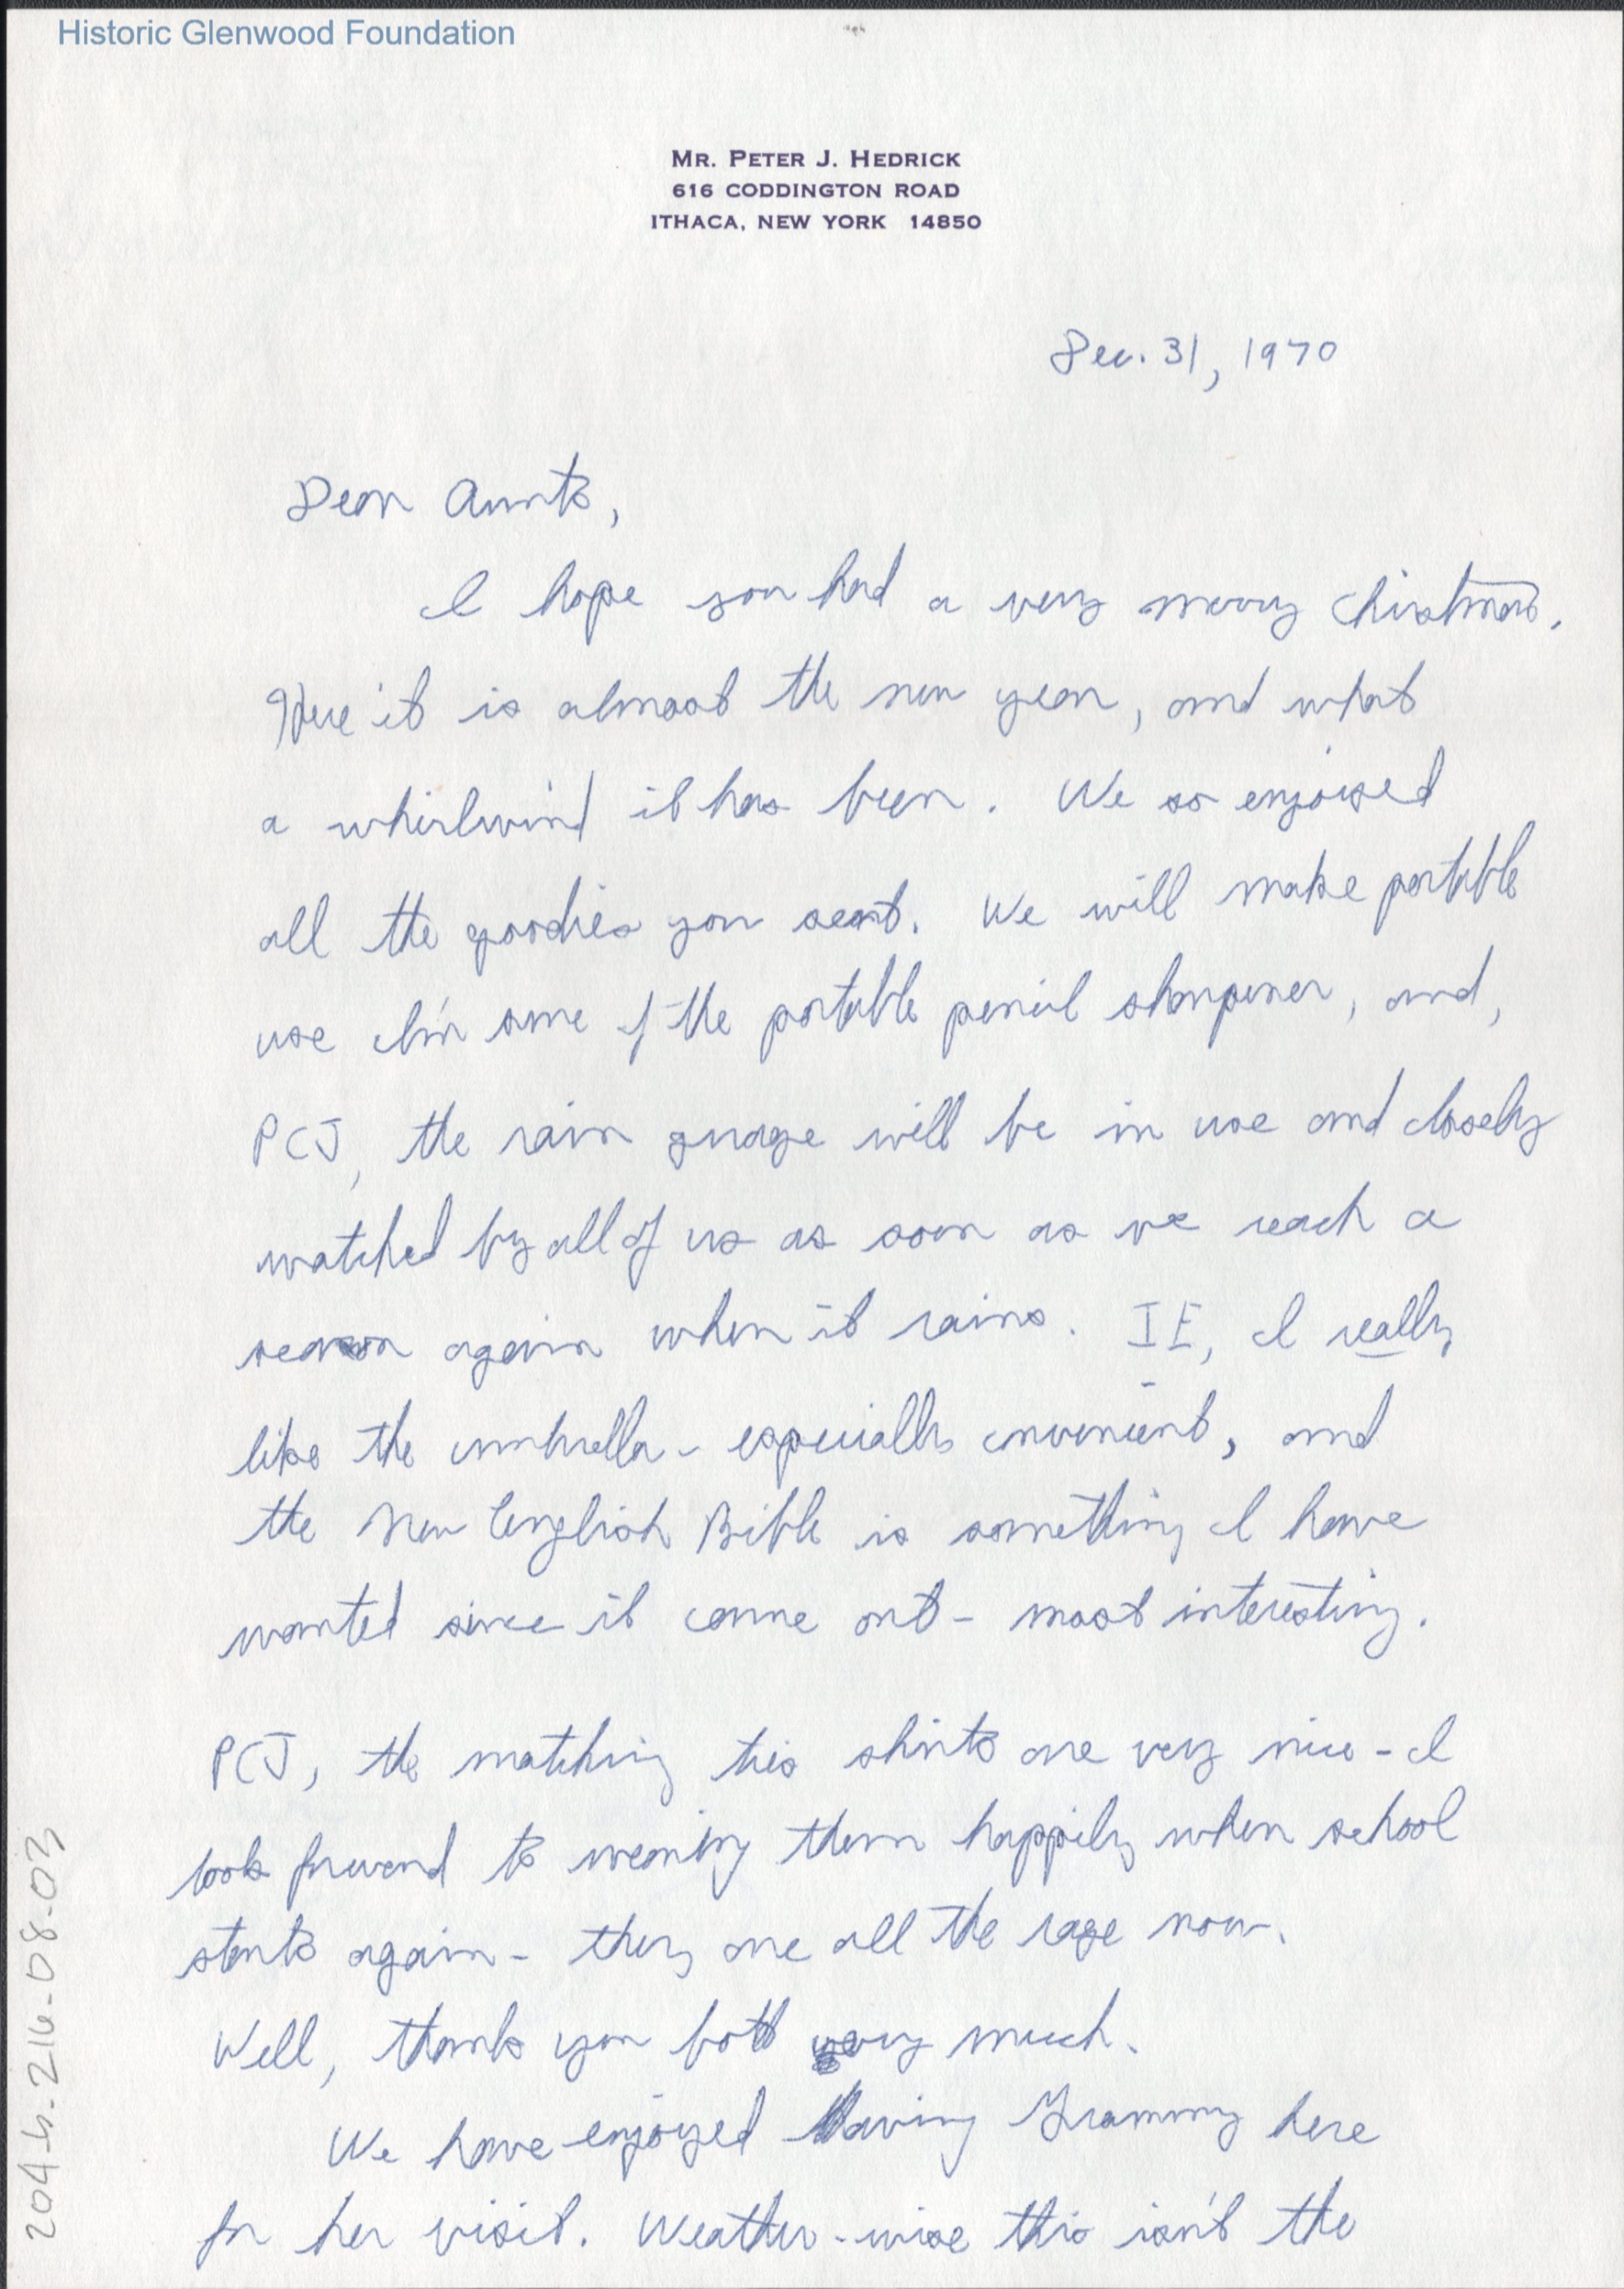 Historic Glenwood Foundation
MR. PETER J. HEDRICK
616 CODDINGTON ROAD
ITHACA, NEW YORK 14850
Dec. 31, 1970
Dear Aunts,
I hope you had a very merry Christmas.
Here it is almost the new year, and what
a whirlwind it has been. We so enjoyed
all the goodies you sent. We will make portable
use I'm sure of the portable pencil sharpener, and,
PCJ, the rain guage will be in use and closely
watched by all of us as soon as we reach a
season again when it rains. IE, I really
like the umbrella - especially convenient, and
the New English Bible is something I have
wanted since it came out - most interesting.
PCJ, the matching ties shirts are very nice - I
look forward to wearing them happily when school
starts again - they are all the rage now.
Well, thank you both very much.
We have enjoyed having Grammy here
for her visit. Weather-wise this isn't the
204-h-216-08-03